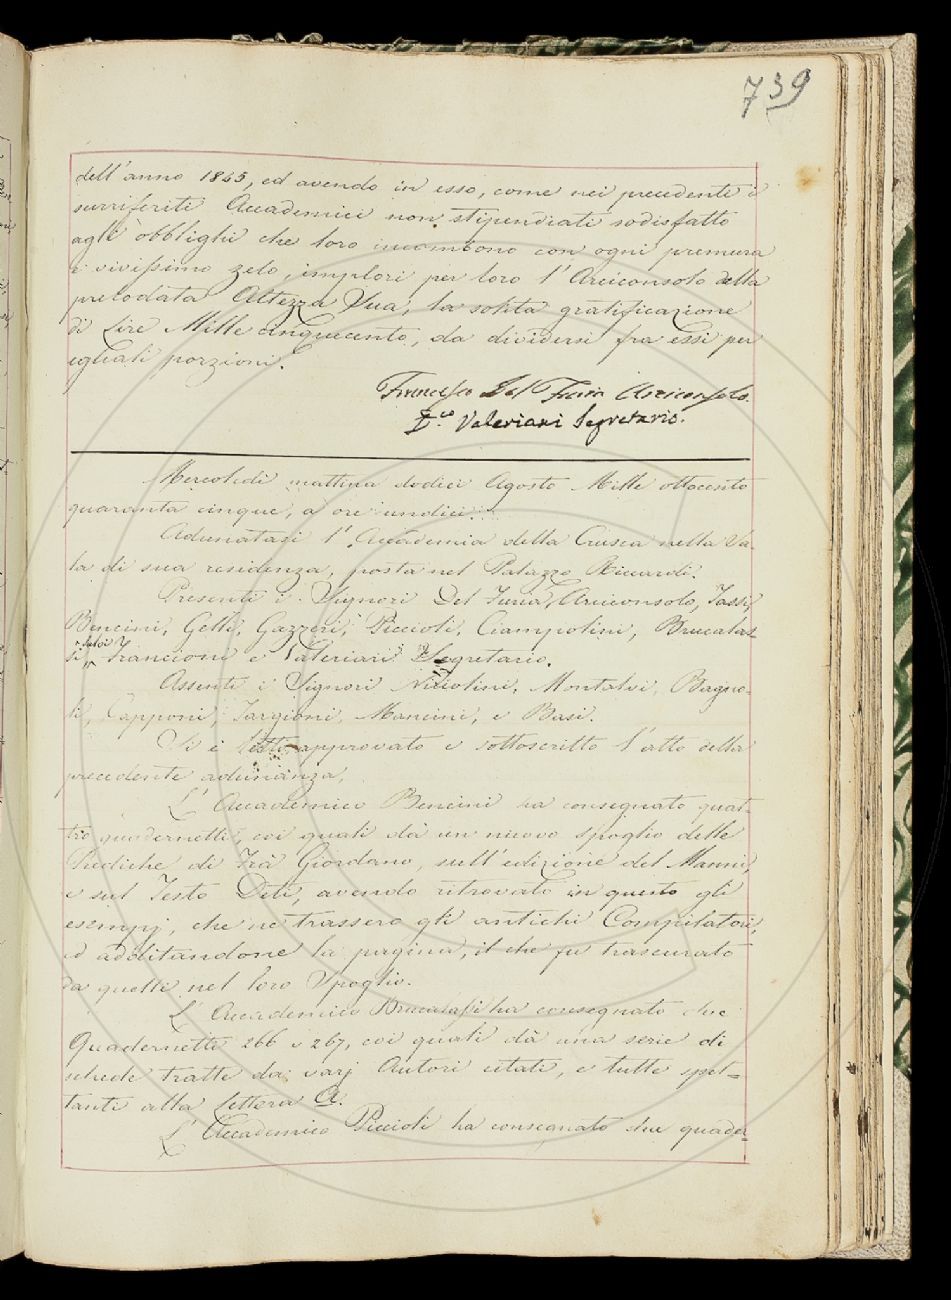 739
dell'anno 1845, ed avendo in esso, come nei precedenti i
surriferiti Accademici non stipendiati sodisfatto
agli obblighi che loro incombono con ogni premura
e vivissimo zelo, implori per loro l'Arciconsolo della
prelodata Altezza Sua, la solita gratificazione
di Lire Mille cinquecento, da dividersi fra essi per
eguali porzioni.
Francesco Del Furia Arciconsolo.
D.co Valeriani Segretario.
Mercoledì mattina dodici Agosto Mille ottocento
quaranta cinque, a ore undici.
Adunatasi l'Accademia della Crusca nella Sa-
la di sua residenza, posta nel Palazzo Riccardi.
Presenti i Signori Del Furia Arciconsolo, Tassi,
Bencini, Gelli, Gazzeri, Piccioli, Ciampolini, Brucalas
si, Francioni e Valeriani Segretario.
Assenti i Signori Niccolini, Montalvi, Bagno-
li, Capponi, Targioni, Mancini, e Basi.
Si è letto approvato e sottoscritto l'atto della
precedente adunanza.
L'Accademico Bencini ha consegnato quat-
tro quadernetti, coi quali dà un nuovo spoglio delle
Prediche di Frà Giordano, sull'edizione del Manni,
e sul Testo Deti, avendo ritrovato in questo gli
esempj, che ne trassero gli antichi Compilatori,
ed additandone la pagina, il che fu trascurato
da quelli nel loro Spoglio.
L'Accademico Brucalassi ha consegnato due
Quadernetti 266 e 267, coi quali dà una serie di
schede tratte da varj Autori citati, e tutte spet=
tanti alla Lettera A.
L'Accademico Piccioli ha consegnato due quader-